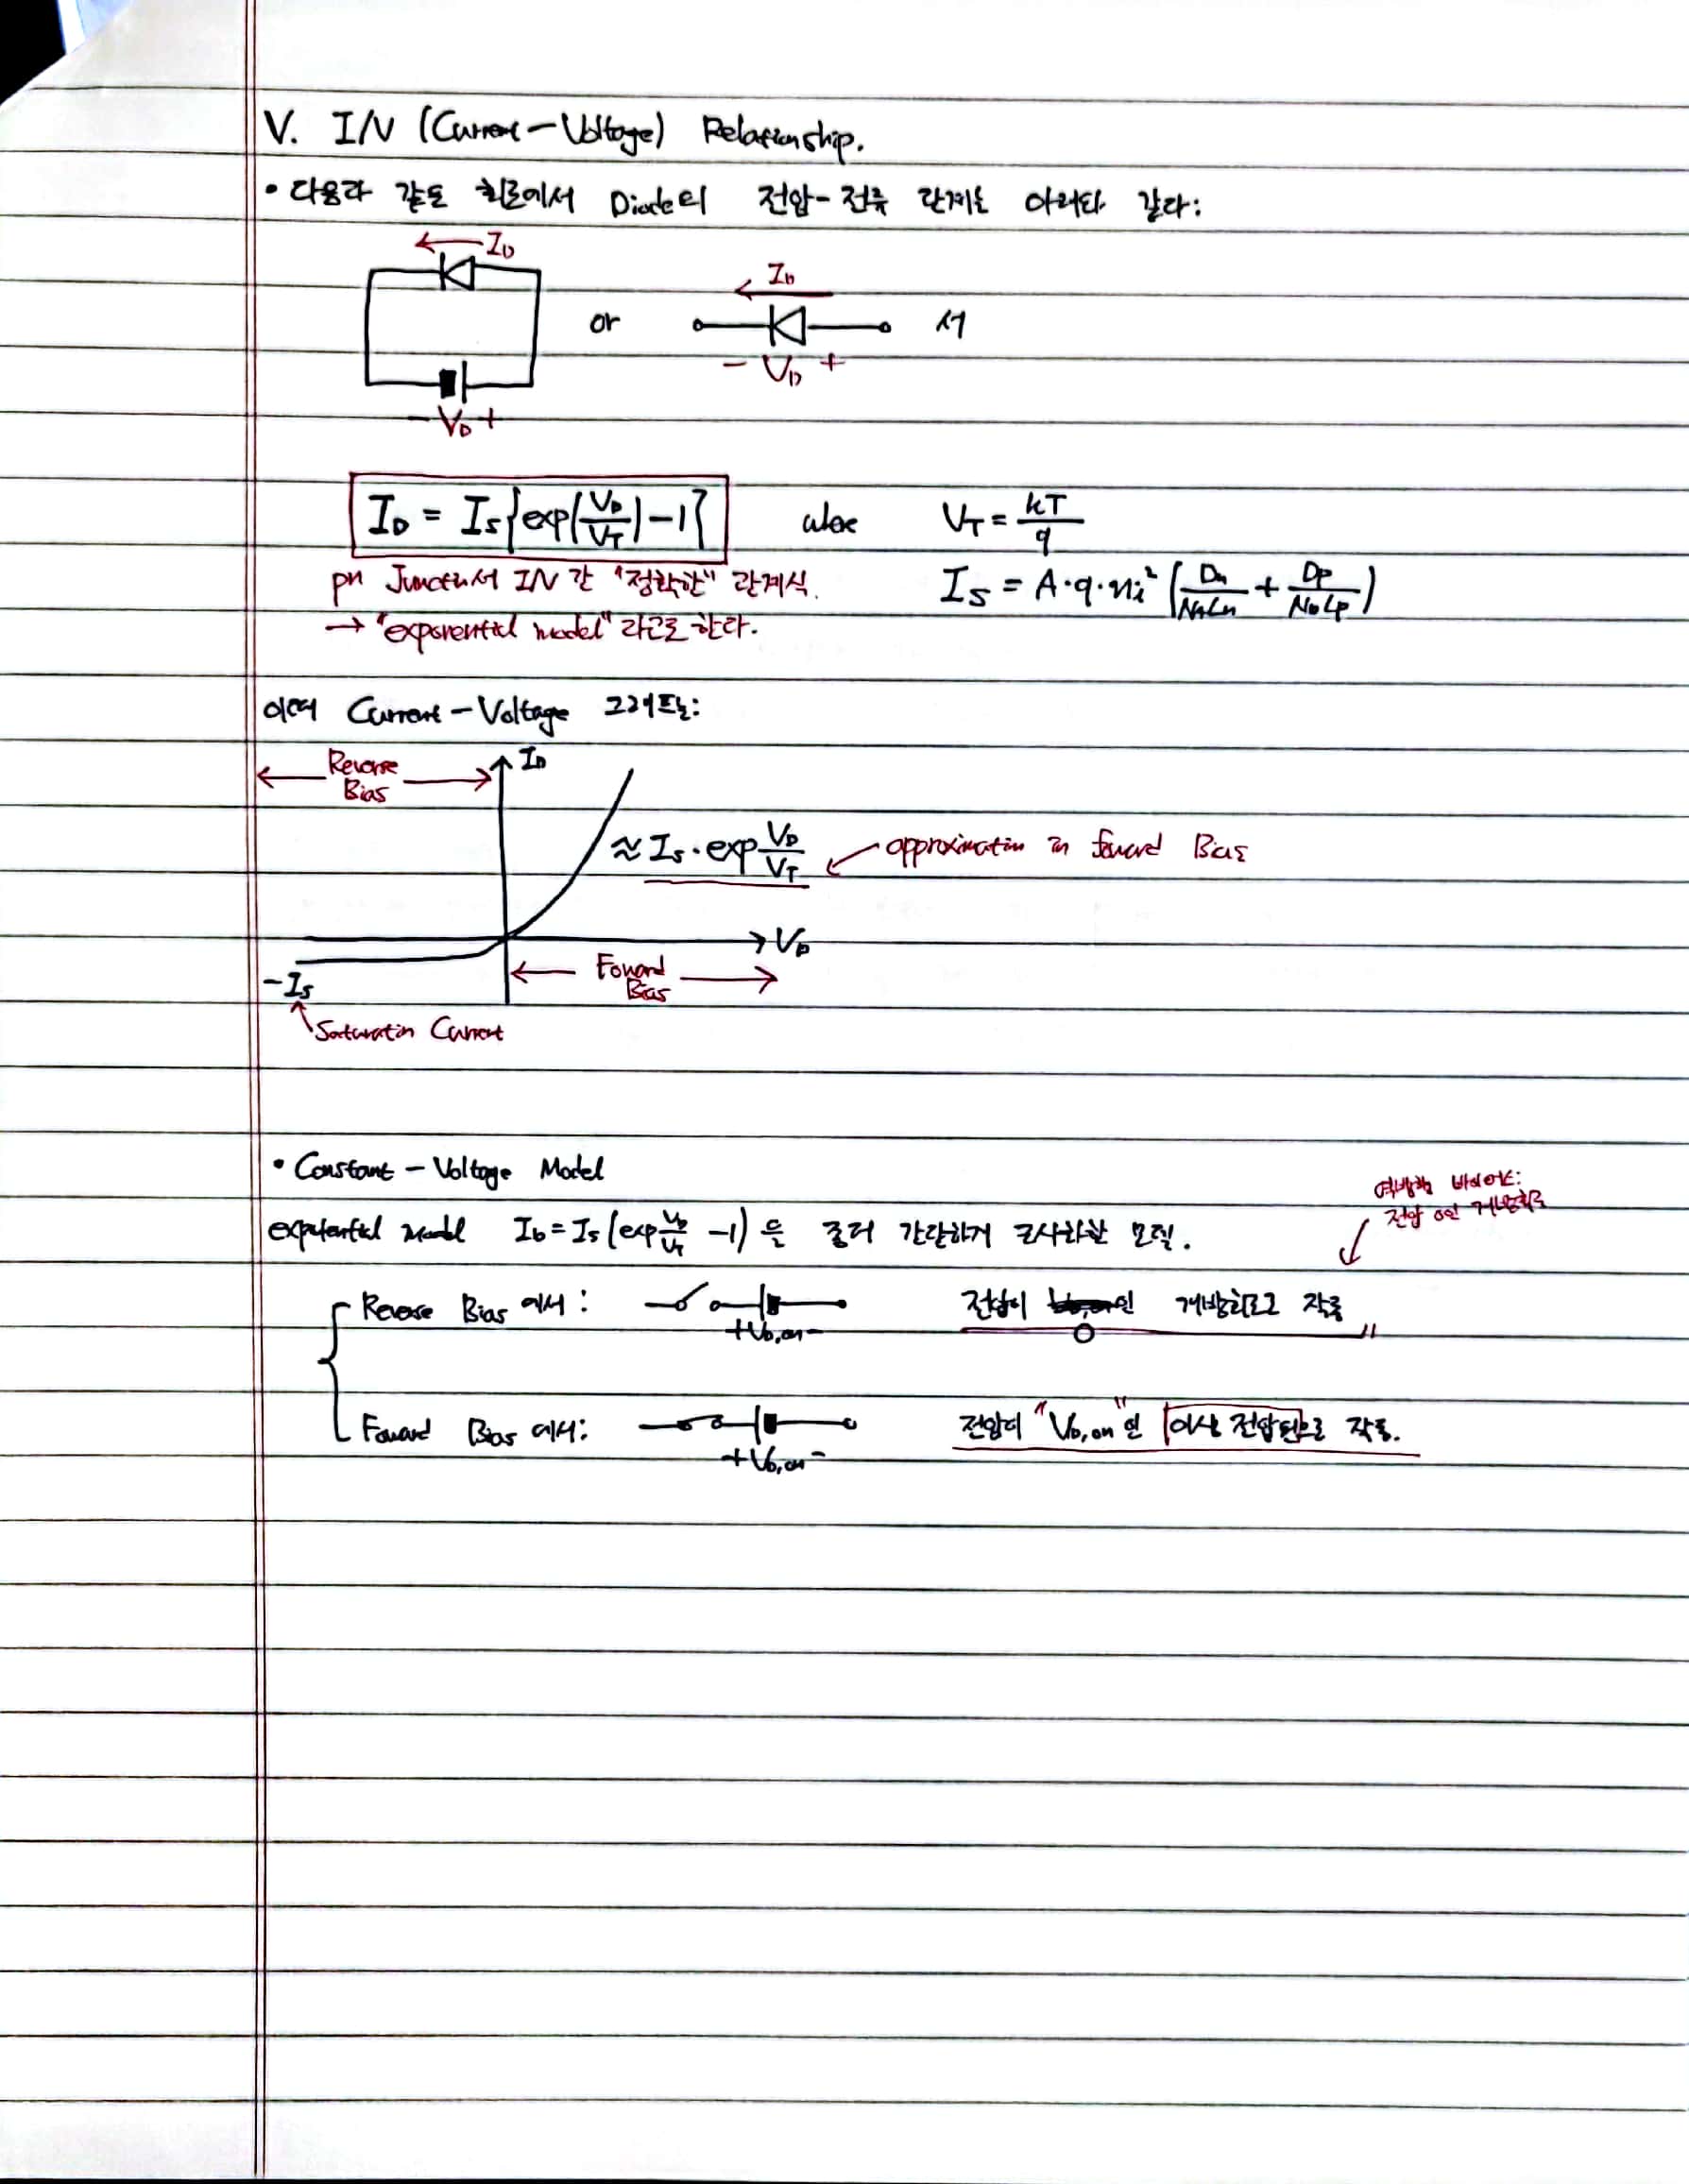 V. I/V (Current-Voltage) Relationship.
• 다음과 같은 회로에서 Diode의 전압-전류 관계는 아래와 같다:
I_D
I_D
or
서
- V_D +
- V_D +
I_D = I_S{exp(V_D/V_T)-1} where V_T = kT/q
pn Junction서 I/V 간 "정확한" 관계식.
I_S = A·q·n_i²(D_n/(N_A L_n) + D_p/(N_D L_p))
→ "exponential model" 라고도 한다.
이때 Current-Voltage 그래프는:
Reverse Bias
I_D
≈ I_S·exp V_D/V_T
approximation in foward Bias
V_D
Foward Bias
-I_S
Saturation Current
• Constant-Voltage Model
역방향 바이어스:
전압 0인 개방회로
exponential model I_D = I_S(exp V_D/V_T -1)을 좀더 간단하게 근사화한 모델.
Reverse Bias에서: +V_D,on- 전압이 0인 개방회로로 작동
Foward Bias에서: +V_D,on- 전압이 "V_D,on"인 이상 전압원으로 작동.